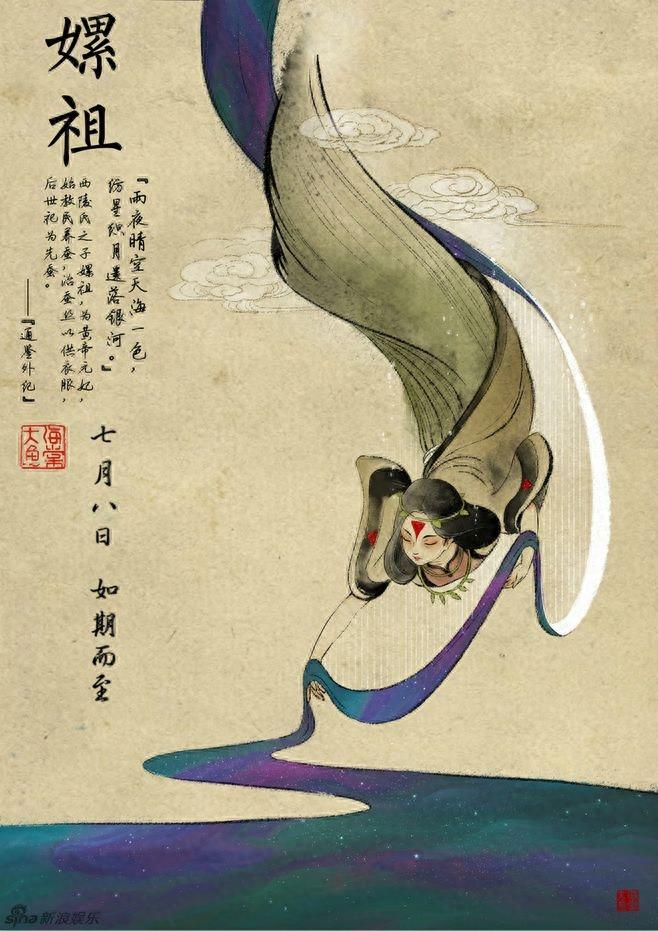 嫘祖
『雨夜晴空天海一色，
纺星织月遗落银河。』
西陵氏之子嫘祖，为黄帝元妃，
始教民养蚕，治蚕丝以供衣服，
后世祀为先蚕。
——『通鉴外纪』
海棠
大鱼
七月八日 如期而至
sina新浪娱乐